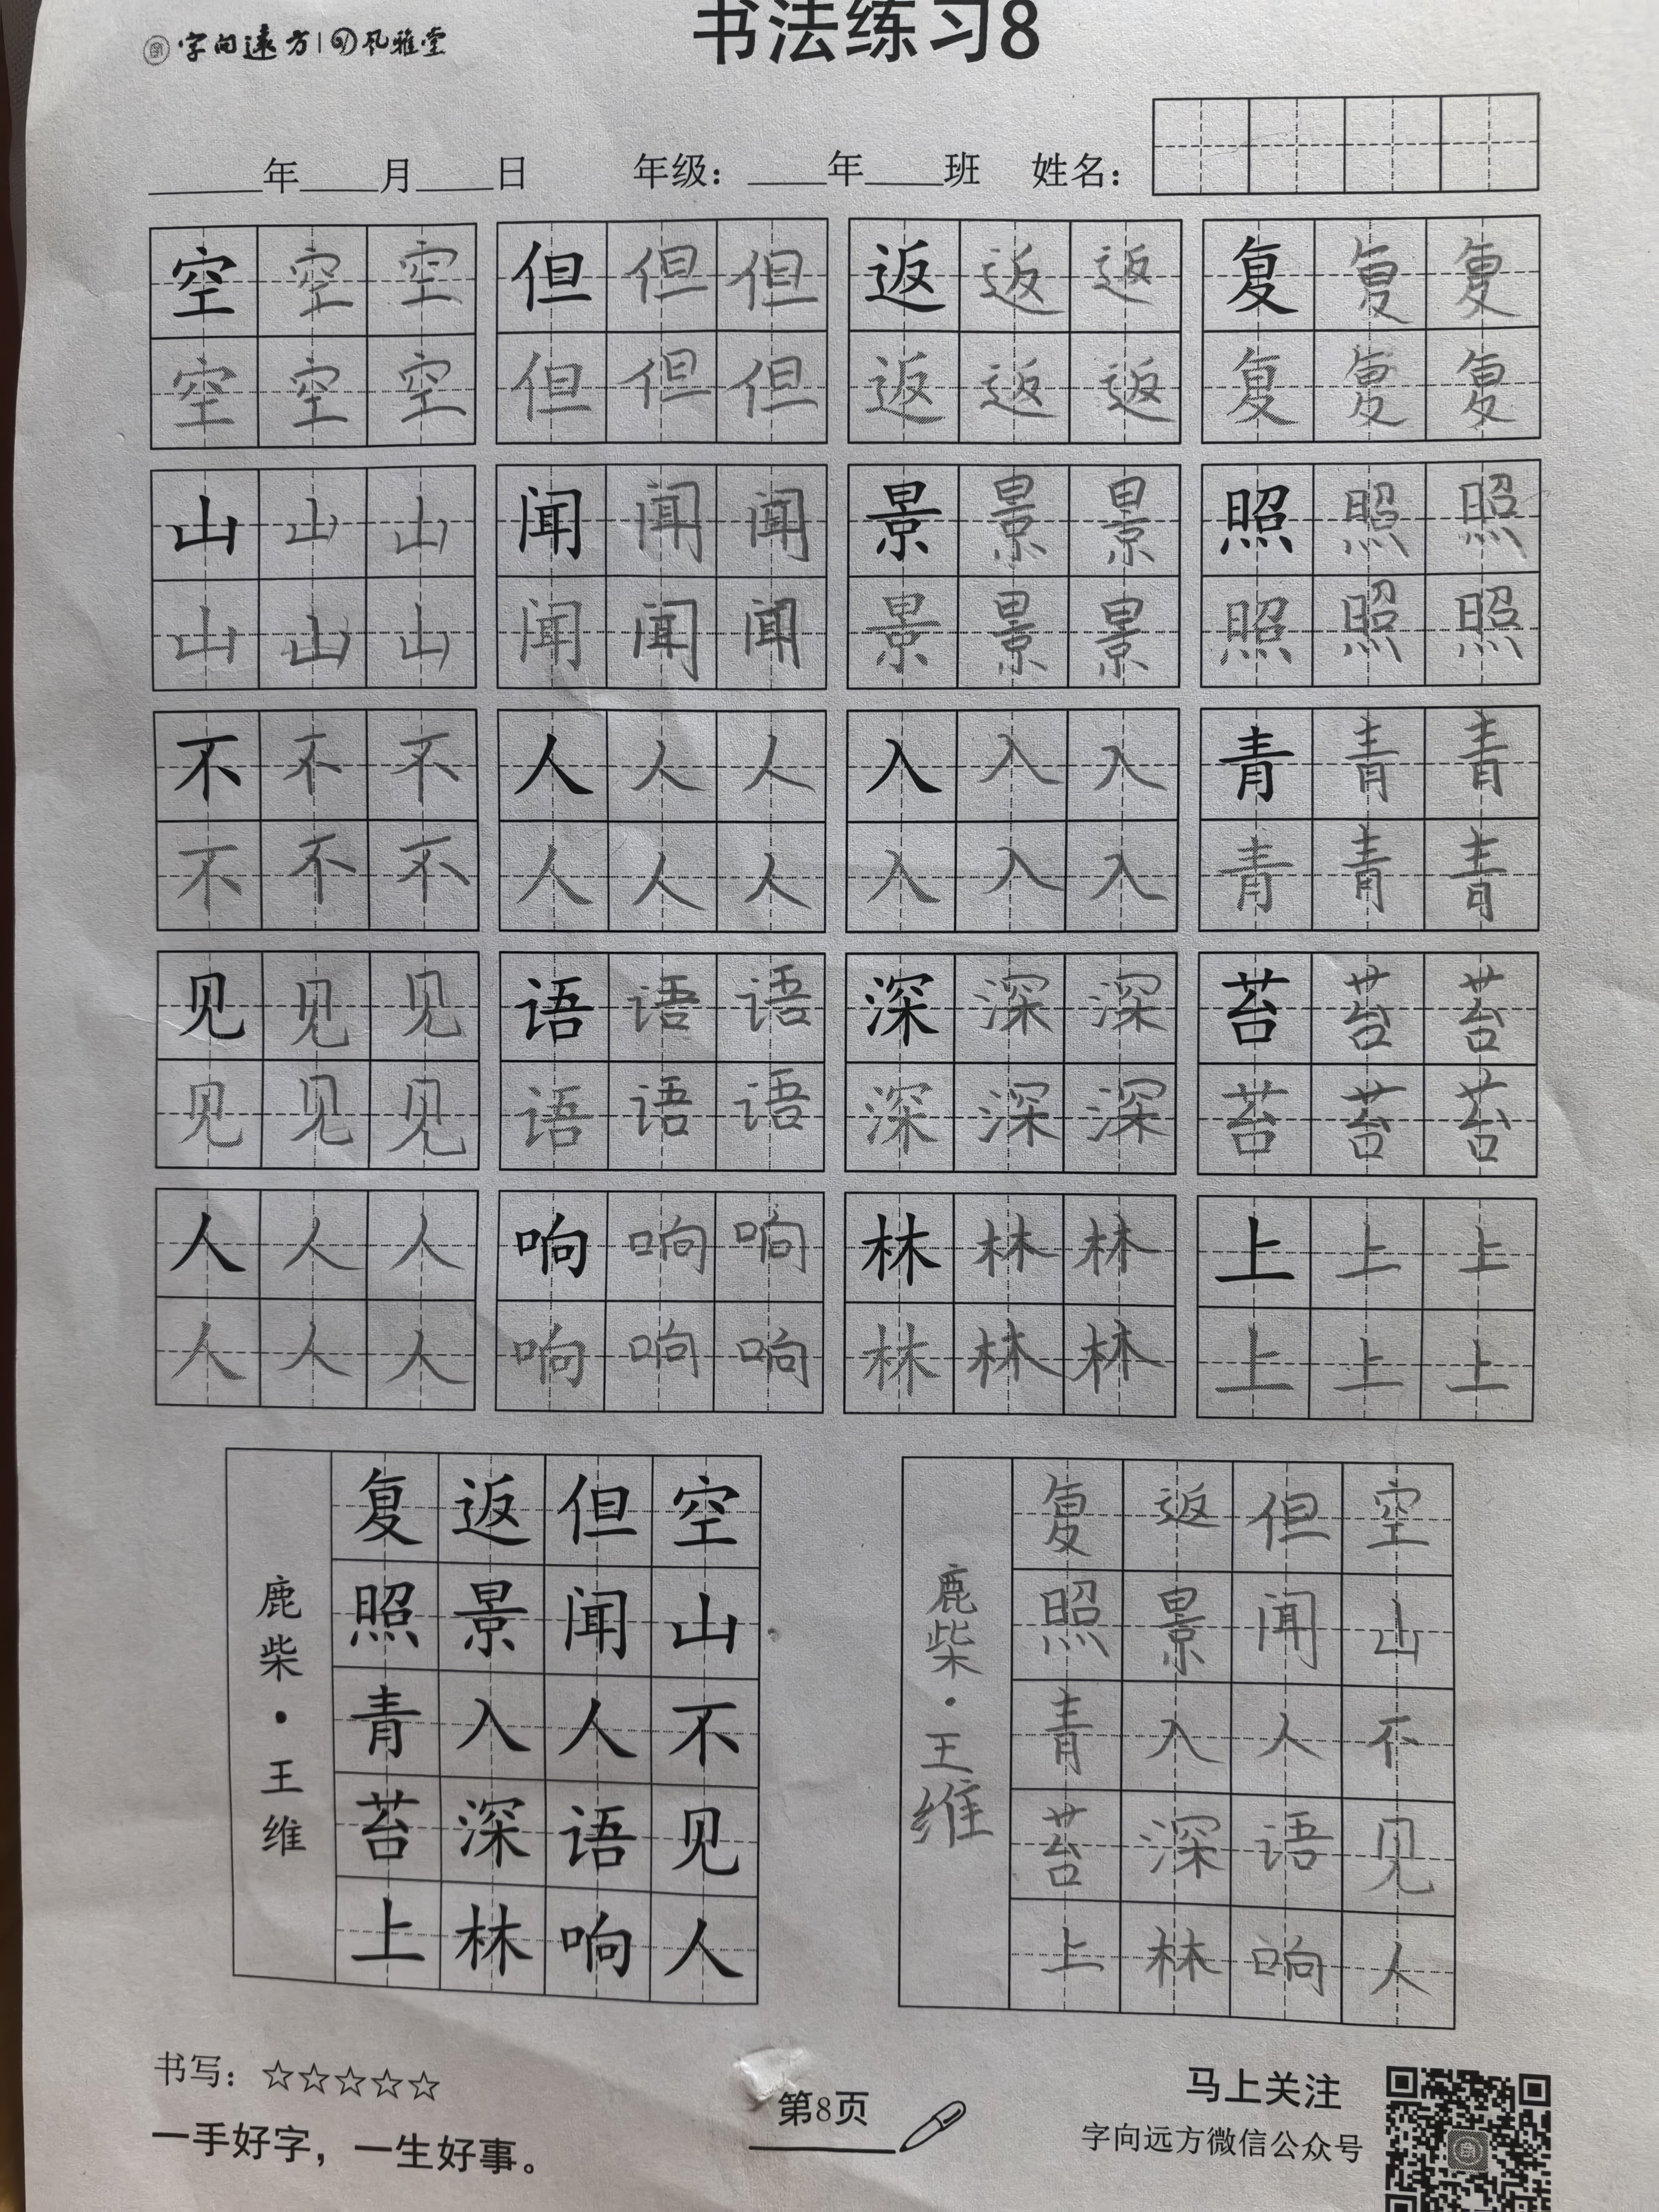 字向遠方 | 风雅堂
书法练习8
年 月 日 年级： 年 班 姓名：
空 空 空 但 但 但 返 返 返 复 复 复
空 空 空 但 但 但 返 返 返 复 复 复
山 山 山 闻 闻 闻 景 景 景 照 照 照
山 山 山 闻 闻 闻 景 景 景 照 照 照
不 不 不 人 人 人 入 入 入 青 青 青
不 不 不 人 人 人 入 入 入 青 青 青
见 见 见 语 语 语 深 深 深 苔 苔 苔
见 见 见 语 语 语 深 深 深 苔 苔 苔
人 人 人 响 响 响 林 林 林 上 上 上
人 人 人 响 响 响 林 林 林 上 上 上
空山不见人
但闻人语响
返景入深林
复照青苔上
鹿柴·王维
空山不见人
但闻人语响
返景入深林
复照青苔上
鹿柴·王维
书写：☆☆☆☆☆
一手好字，一生好事。
第8页
马上关注
字向远方微信公众号